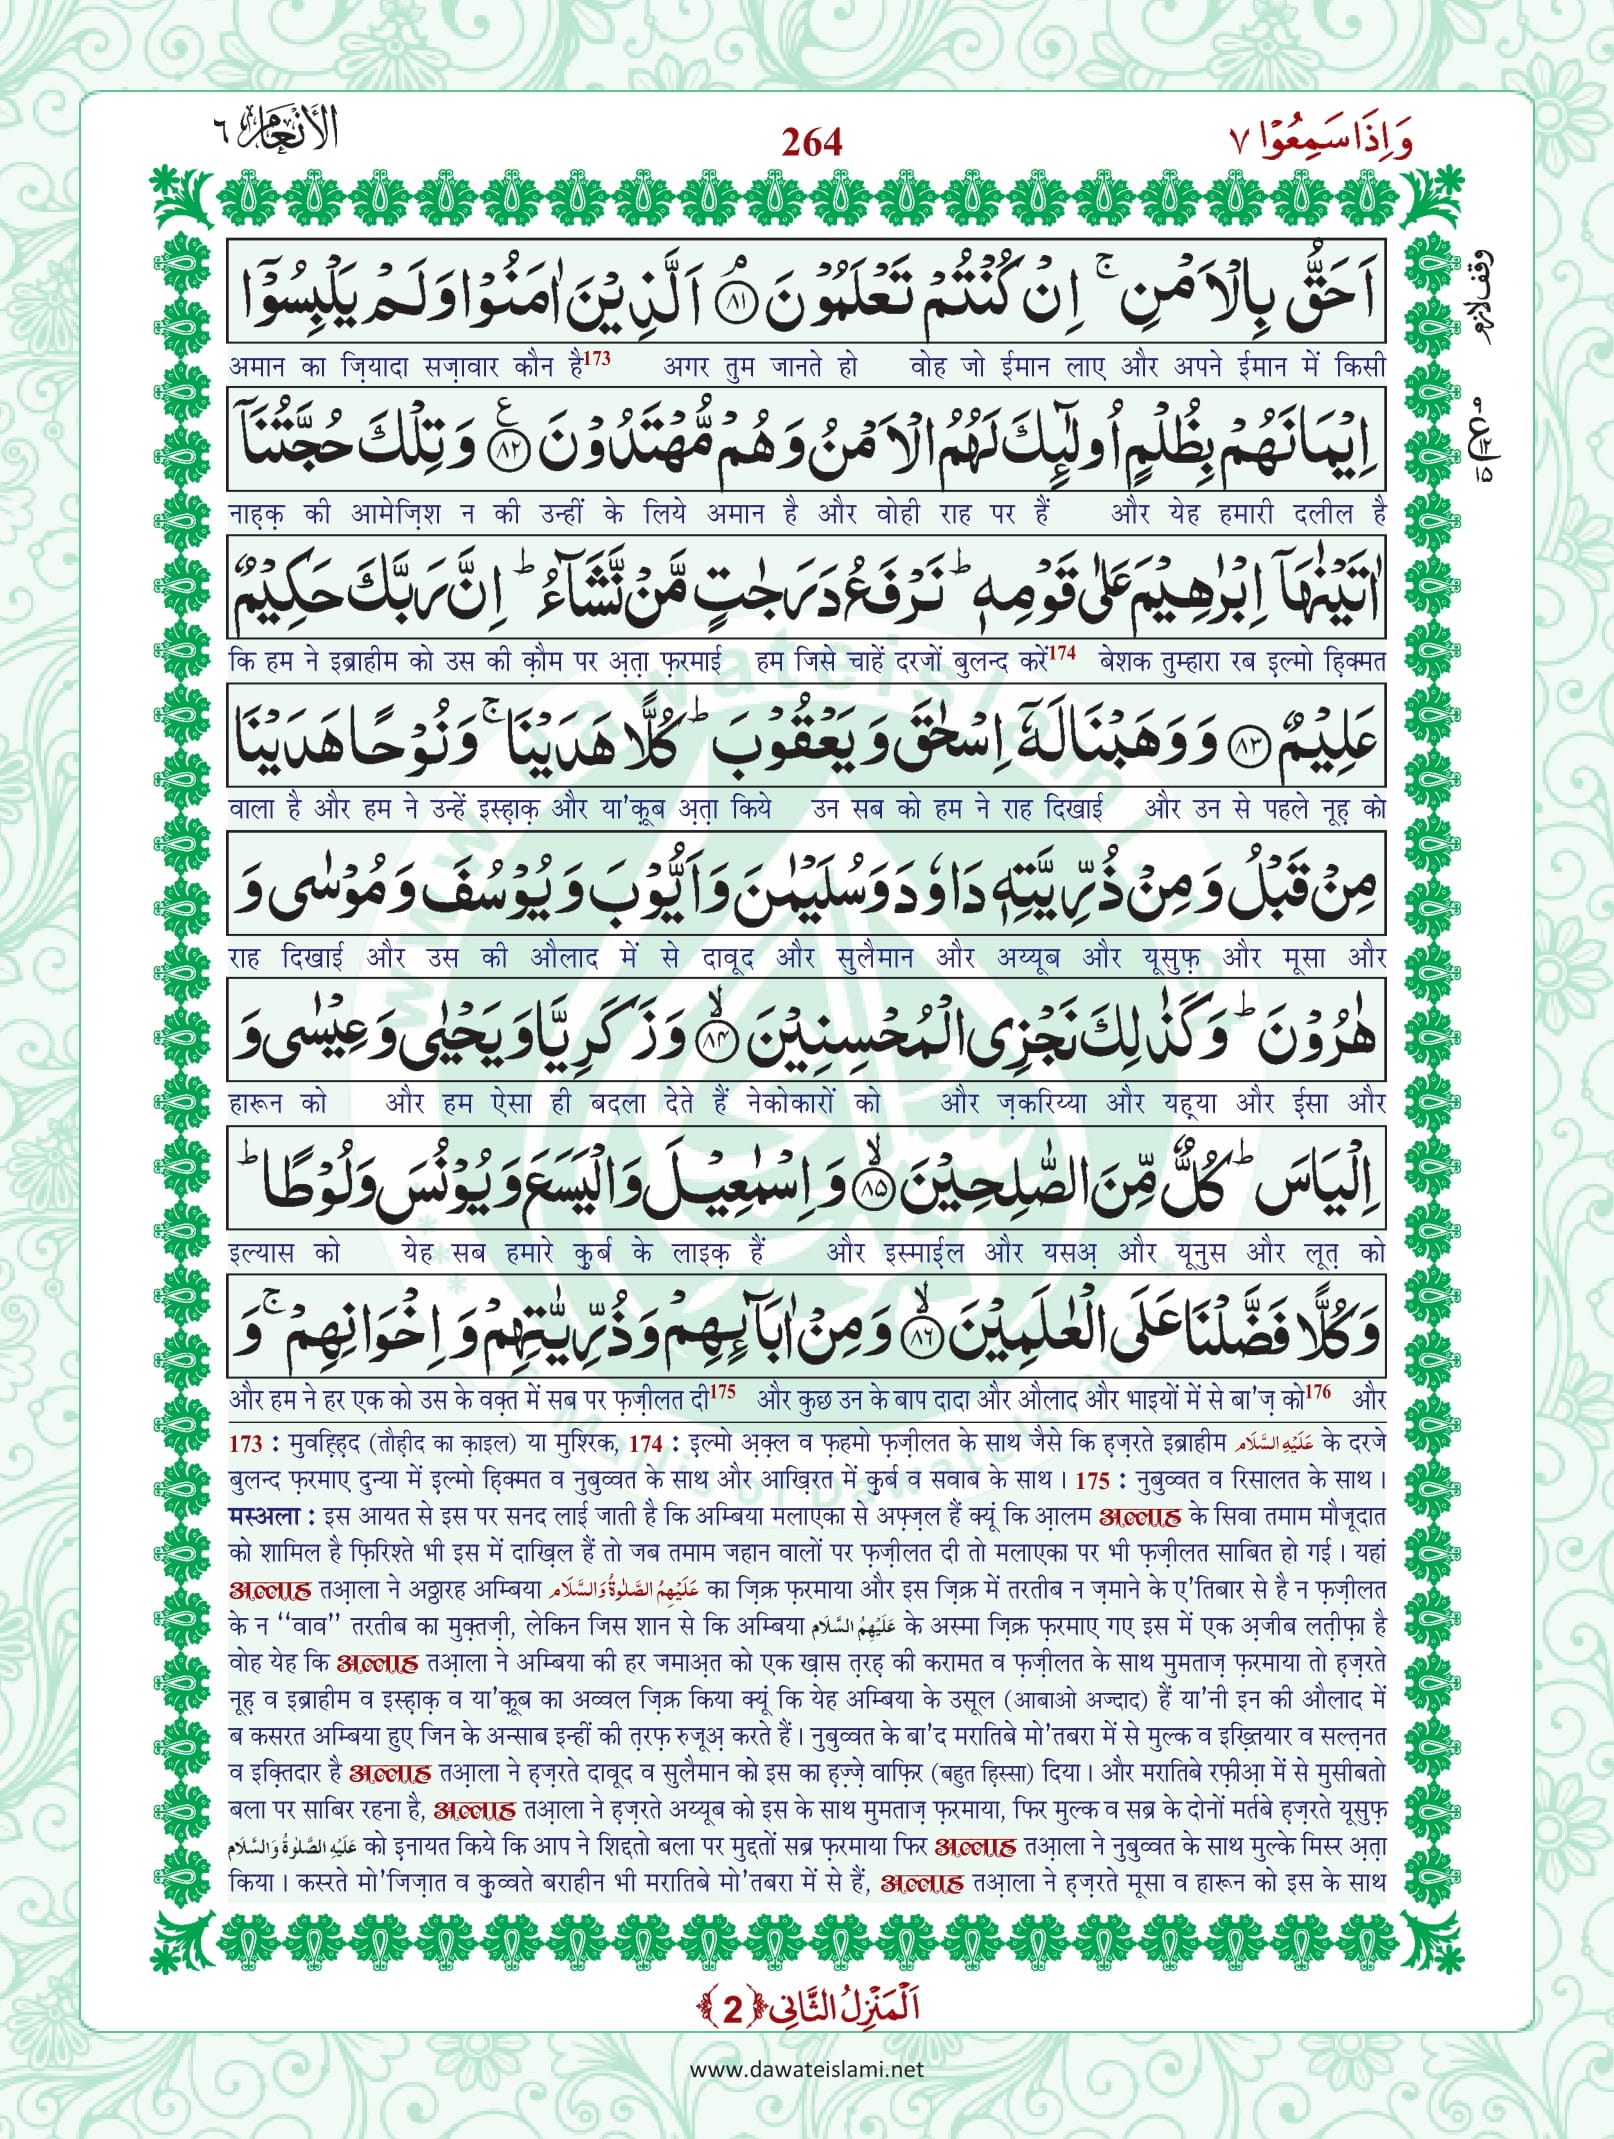 وَاِذَا سَمِعُوْا ٧ 264 الأنعام ٦
اَحَقُّ بِالْاَمْنِ ۚ اِنْ كُنْتُمْ تَعْلَمُوْنَ ﴿٨١﴾ۘ اَلَّذِيْنَ اٰمَنُوْا وَلَمْ يَلْبِسُوْۤا
وقف لازم
अमान का ज़ियादा सज़ावार कौन है173 अगर तुम जानते हो वोह जो ईमान लाए और अपने ईमान में किसी
اِيْمَانَهُمْ بِظُلْمٍ اُولٰٓئِكَ لَهُمُ الْاَمْنُ وَهُمْ مُّهْتَدُوْنَ ﴿٨٢﴾ۧ وَتِلْكَ حُجَّتُنَاۤ
नाह़क़ की आमेज़िश न की उन्हीं के लिये अमान है और वोही राह पर हैं और येह हमारी दलील है
اٰتَيْنٰهَاۤ اِبْرٰهِيْمَ عَلٰى قَوْمِهٖ ؕ نَرْفَعُ دَرَجٰتٍ مَّنْ نَّشَآءُ ؕ اِنَّ رَبَّكَ حَكِيْمٌ
कि हम ने इब्राहीम को उस की क़ौम पर अ़त़ा फ़रमाई हम जिसे चाहें दरजों बुलन्द करें174 बेशक तुम्हारा रब इ़ल्मो ह़िक्मत
عَلِيْمٌ ﴿٨٣﴾ وَوَهَبْنَا لَهٗۤ اِسْحٰقَ وَيَعْقُوْبَ ؕ كُلًّا هَدَيْنَا ۚ وَنُوْحًا هَدَيْنَا
वाला है और हम ने उन्हें इस्ह़ाक़ और या'क़ूब अ़त़ा किये उन सब को हम ने राह दिखाई और उन से पहले नूह़ को
مِنْ قَبْلُ وَمِنْ ذُرِّيَّتِهٖ دَاوٗدَ وَسُلَيْمٰنَ وَاَيُّوْبَ وَيُوْسُفَ وَمُوْسٰى وَ
राह दिखाई और उस की औलाद में से दावूद और सुलैमान और अय्यूब और यूसुफ़ और मूसा और
هٰرُوْنَ ؕ وَكَذٰلِكَ نَجْزِى الْمُحْسِنِيْنَ ﴿٨٤﴾ۙ وَزَكَرِيَّا وَيَحْيٰى وَعِيْسٰى وَ
हारून को और हम ऐसा ही बदला देते हैं नेकोकारों को और ज़करिय्या और यह़्या और ई़सा और
اِلْيَاسَ ؕ كُلٌّ مِّنَ الصّٰلِحِيْنَ ﴿٨٥﴾ۙ وَاِسْمٰعِيْلَ وَالْيَسَعَ وَيُوْنُسَ وَلُوْطًا ؕ
इल्यास को येह सब हमारे क़ुर्ब के लाइक़ हैं और इस्माई़ल और यसअ़ और यूनुस और लूत़ को
وَكُلًّا فَضَّلْنَا عَلَى الْعٰلَمِيْنَ ﴿٨٦﴾ۙ وَمِنْ اٰبَآئِهِمْ وَذُرِّيّٰتِهِمْ وَاِخْوَانِهِمْ ۚ وَ
और हम ने हर एक को उस के वक़्त में सब पर फ़ज़ीलत दी175 और कुछ उन के बाप दादा और औलाद और भाइयों में से बा'ज़ को176 और
173 : मुवह़्ह़िद (तौह़ीद का क़ाइल) या मुश्रिक, 174 : इ़ल्मो अ़क़्ल व फ़हमो फ़ज़ीलत के साथ जैसे कि ह़ज़रते इब्राहीम عَلَيْهِ السَّلَام के दरजे
बुलन्द फ़रमाए दुन्या में इ़ल्मो ह़िक्मत व नुबुव्वत के साथ और आख़िरत में क़ुर्ब व सवाब के साथ । 175 : नुबुव्वत व रिसालत के साथ ।
मस्अला : इस आयत से इस पर सनद लाई जाती है कि अम्बिया मलाएका से अफ़्ज़ल हैं क्यूं कि आ़लम अल्लाह के सिवा तमाम मौजूदात
को शामिल है फ़िरिश्ते भी इस में दाख़िल हैं तो जब तमाम जहान वालों पर फ़ज़ीलत दी तो मलाएका पर भी फ़ज़ीलत साबित हो गई । यहां
अल्लाह तआ़ला ने अठ्ठारह अम्बिया عَلَيْهِمُ الصَّلٰوةُ وَالسَّلَام का ज़िक्र फ़रमाया और इस ज़िक्र में तरतीब न ज़माने के ए'तिबार से है न फ़ज़ीलत
के न ‘‘वाव’’ तरतीब का मुक़्तज़ी, लेकिन जिस शान से कि अम्बिया عَلَيْهِمُ السَّلَام के अस्मा ज़िक्र फ़रमाए गए इस में एक अ़जीब लत़ीफ़ा है
वोह येह कि अल्लाह तआ़ला ने अम्बिया की हर जमाअ़त को एक ख़ास त़रह़ की करामत व फ़ज़ीलत के साथ मुमताज़ फ़रमाया तो ह़ज़रते
नूह़ व इब्राहीम व इस्ह़ाक़ व या'क़ूब का अव्वल ज़िक्र किया क्यूं कि येह अम्बिया के उसूल (आबाओ अज्दाद) हैं या'नी इन की औलाद में
ब कसरत अम्बिया हुए जिन के अन्साब इन्हीं की त़रफ़ रुजूअ़ करते हैं । नुबुव्वत के बा'द मरातिबे मो'तबरा में से मुल्क व इख़्तियार व सल्त़नत
व इक़्तिदार है अल्लाह तआ़ला ने ह़ज़रते दावूद व सुलैमान को इस का ह़ज़्ज़े वाफ़िर (बहुत ह़िस्सा) दिया । और मरातिबे रफ़ीआ़ में से मुसीबतो
बला पर साबिर रहना है, अल्लाह तआ़ला ने ह़ज़रते अय्यूब को इस के साथ मुमताज़ फ़रमाया, फिर मुल्क व सब्र के दोनों मर्तबे ह़ज़रते यूसुफ़
عَلَيْهِ الصَّلٰوةُ وَالسَّلَام को इनायत किये कि आप ने शिद्दतो बला पर मुद्दतों सब्र फ़रमाया फिर अल्लाह तआ़ला ने नुबुव्वत के साथ मुल्के मिस्र अ़त़ा
किया । कस्रते मो'जिज़ात व क़ुव्वते बराहीन भी मरातिबे मो'तबरा में से हैं, अल्लाह तआ़ला ने ह़ज़रते मूसा व हारून को इस के साथ
اَلْمَنْزِلُ الثَّانِى ﴿2﴾
www.dawateislami.net